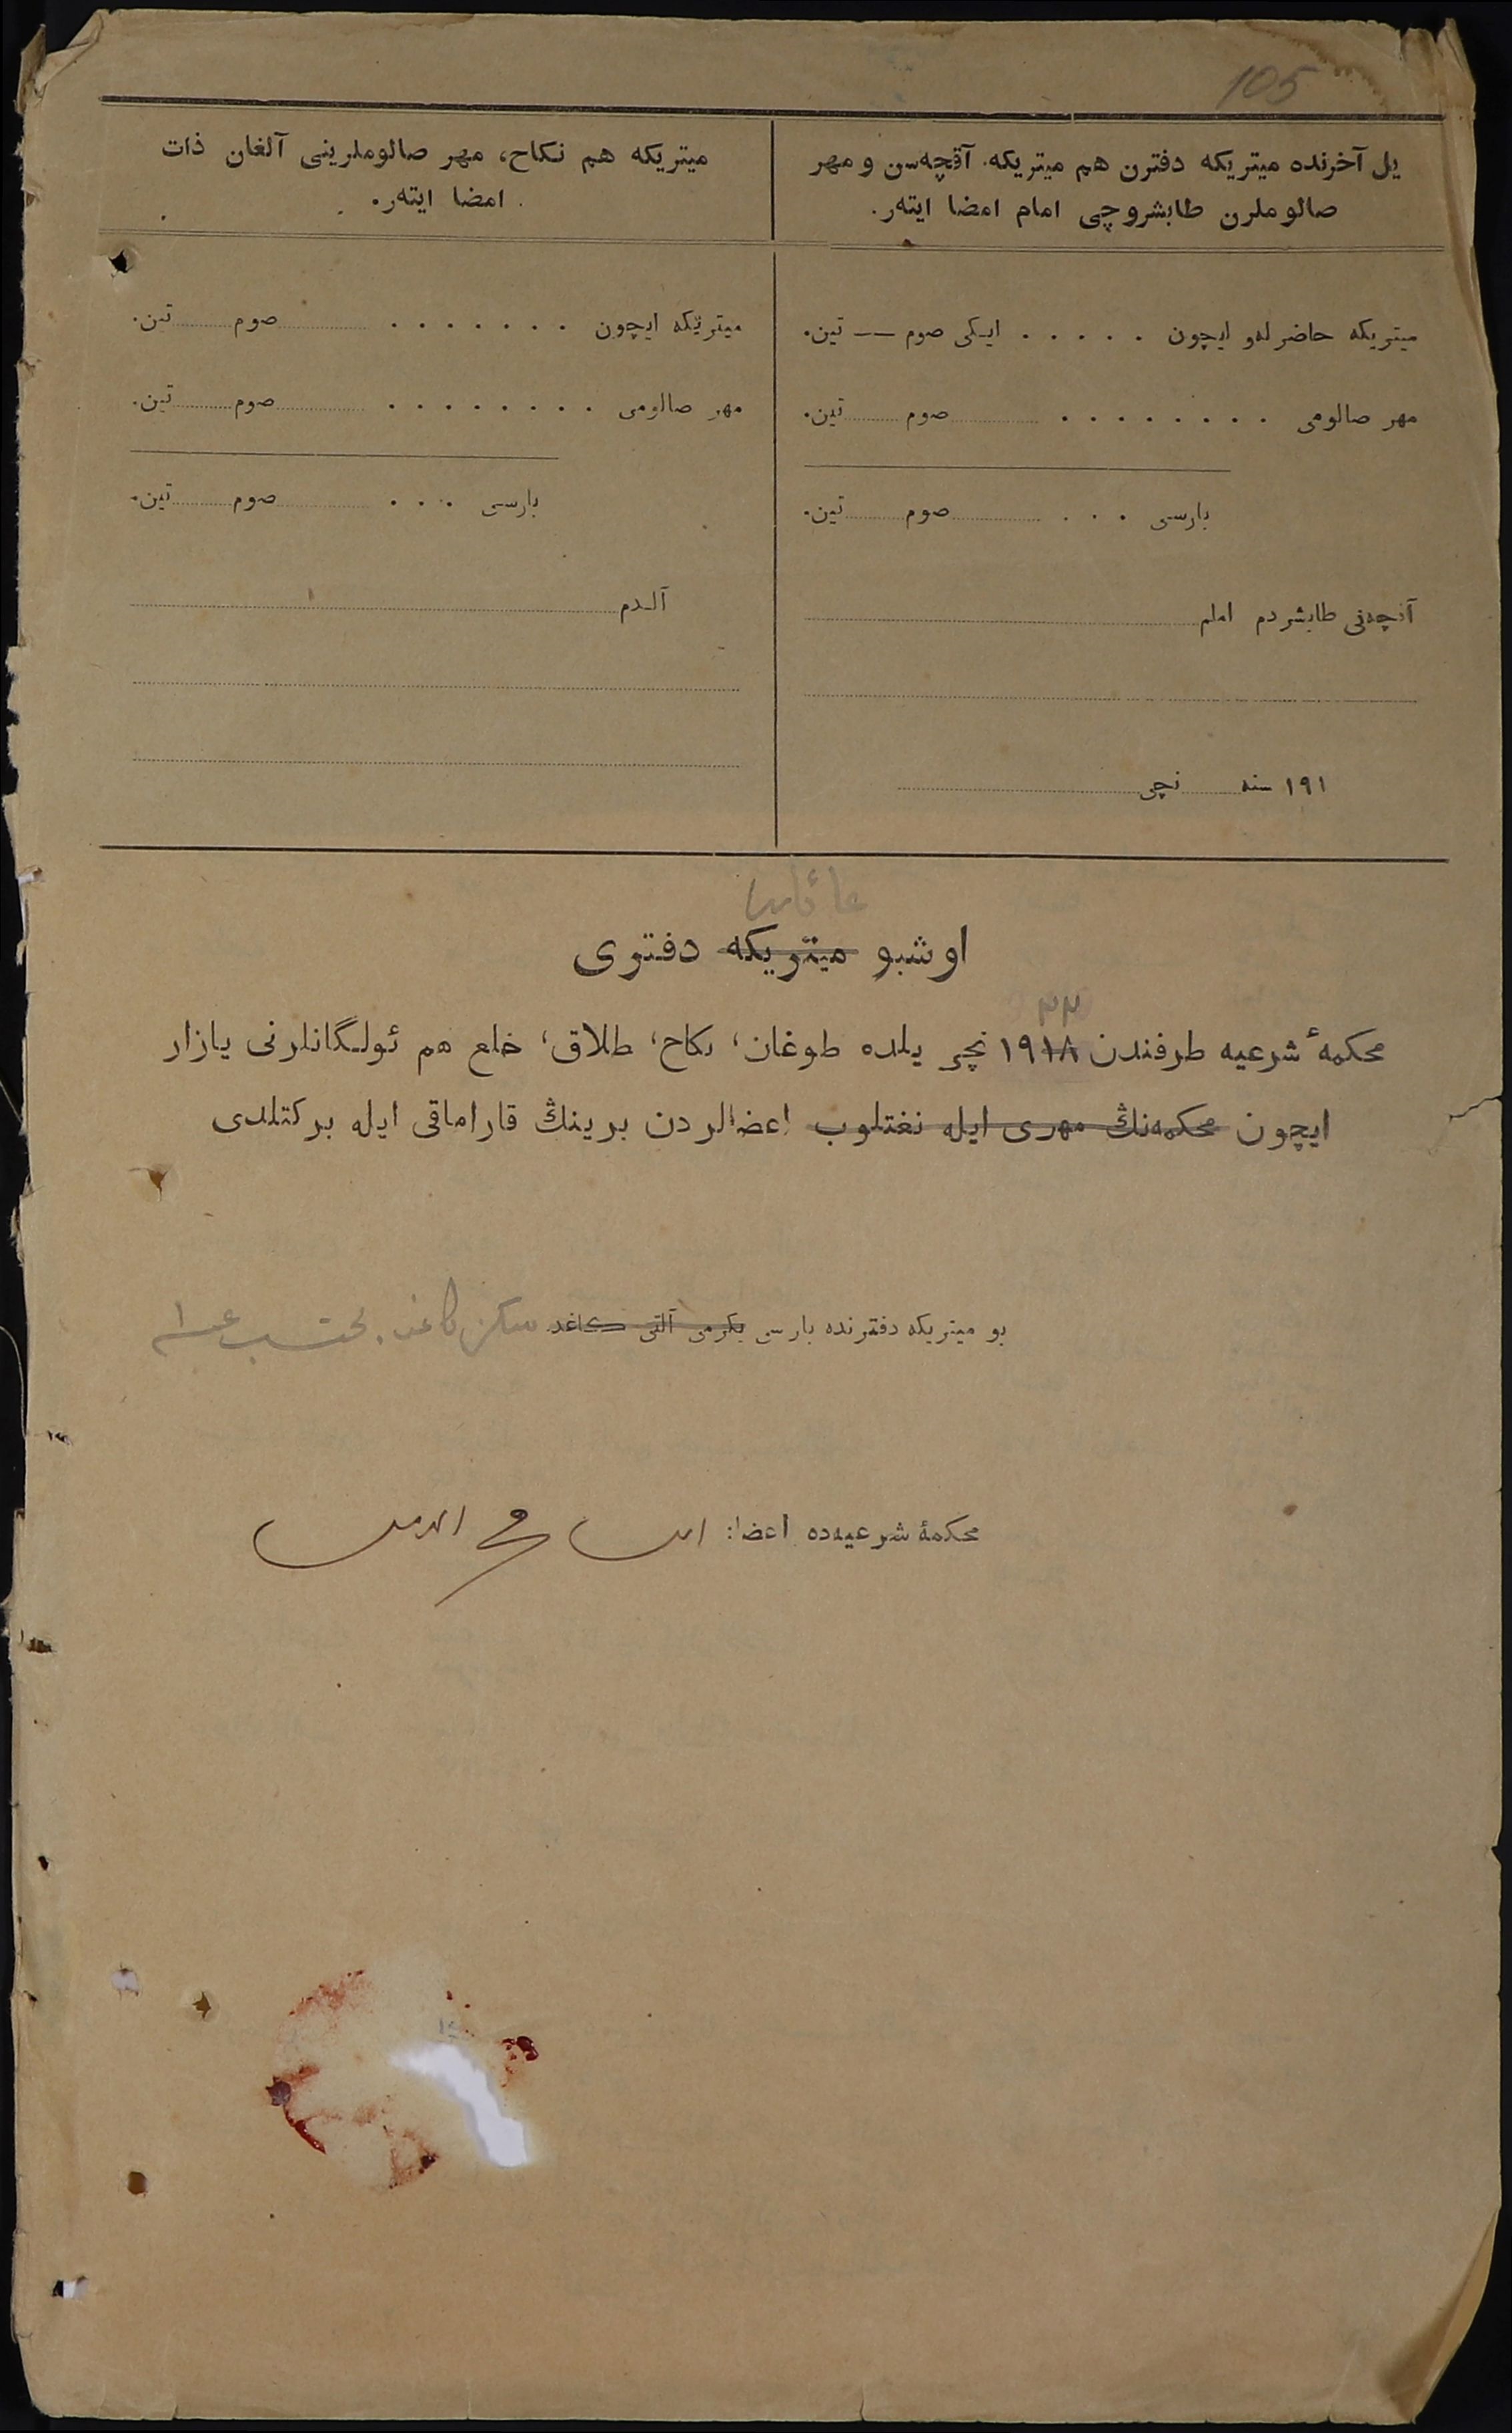 105
یل آخرنده میتریکه دفترن هم میتریکه. آقچه‌سن و مهر
صالوملرن طابشروچی امام امضا ایته‌ر.
میتریکه حاضرله‌و ایچون . . . . . ایکی صوم — تین.
مهر صالومی . . . . . . . . صوم تین.
بارسی . . . صوم تین.
آقچه‌نی طابشردم امام
۱۹۱ سنه نچی
میتریکه هم نکاح، مهر صالوملرینی آلغان ذات
امضا ایته‌ر.
میتریکه ایچون . . . . . . . صوم تین.
مهر صالومی . . . . . . . . صوم تین.
بارسی . . . صوم تین.
آلدم
عائله
اوشبو میتریکه دفتری
۲۳
محکمهٔ شرعیه طرفندن ۱۹۱۸ نچی یلده طوغان، نکاح، طلاق، خلع هم ئولگانلرنی یازار
ایچون محکمه‌نڭ مهری ایله نغتلوب اعضالردن برینڭ قاراماقی ایله برکتلدی
بو میتریکه دفترنده بارسی یکرمی آلتی کاغد سکز کاغد. محتسب
محکمهٔ شرعیه‌ده اعضا: